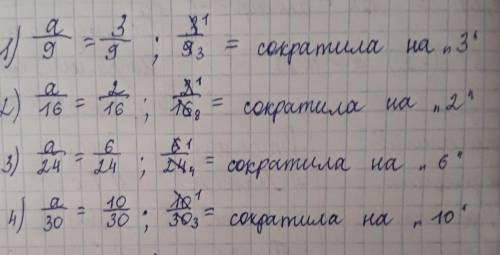 1) а/9 = 3/9 ; 3¹/9₃ = сократила на „3“
2) а/16 = 2/16 ; 2¹/16₈ = сократила на „2“
3) а/24 = 6/24 ; 6¹/24₄ = сократила на „6“
4) а/30 = 10/30 ; 10¹/30₃ = сократила на „10“